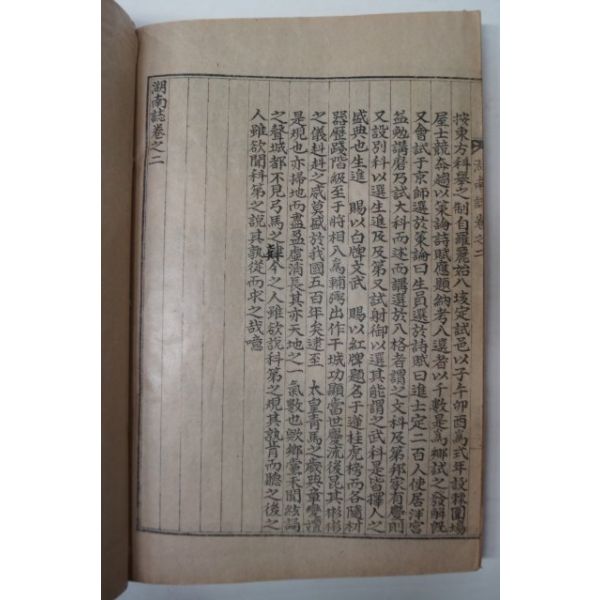 湖南誌卷之二
按東方科擧之制自羅麗始八垓定試邑以子午卯酉爲式年設棘圍場
屋士競奔趨以策論詩賦應題納考人選者以千數是爲鄕試之發解旣
又會試于京師選於策論曰生員選於詩賦曰進士定二百人使居泮宮
益勉講磨乃試大科而述而講選於入格者謂之文科及第邦家有慶則
又設別科以選生進及及第又試射御以選其能謂之武科是皆擇人之
盛典也生進 賜以白牌文武 賜以紅牌題名于蓮桂虎榜而各隨材
器歷踐階級至于將相入爲輔弼出作干城功顯當世慶流後昆其彬彬
之儀赳赳之威莫盛於我國五百年矣逮至 太皇靑馬之歲典章變壞
是規也亦掃地而盡盈虛消長其亦天地之一氣數也歟鄕黨未聞絃誦
之聲城都不見弓馬之肄今之人雖欲說科第之規其孰肯而聽之後之
人雖欲聞科第之說其孰從而求之哉噫
湖南誌卷之二